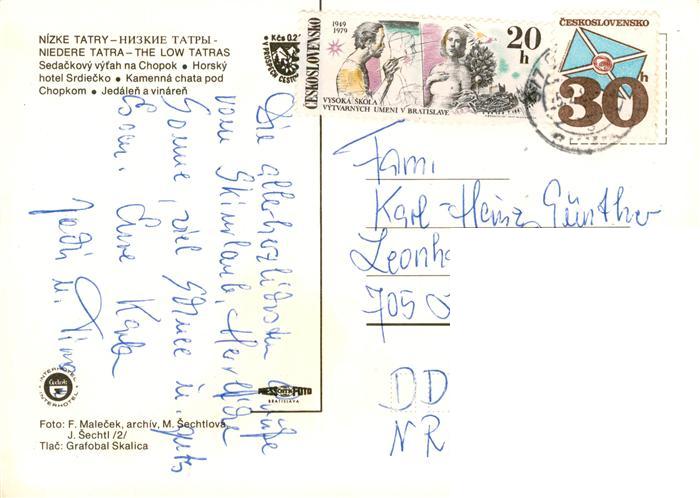 NÍZKE TATRY – НИЗКИЕ ТАТРЫ -
NIEDERE TATRA – THE LOW TATRAS
Sedačkový výťah na Chopok ● Horský
hotel Srdiečko ● Kamenná chata pod
Chopkom ● Jedáleň a vináreň
Kčs 0.2
V PROSPECH CESTO
ČESKOSLOVENSKO
1949
1979
20
h
VYSOKÁ ŠKOLA
VÝTVARNÝCH UMENÍ V BRATISLAVE
ČESKOSLOVENSKO
30
h
Die allerherzlichsten Grüße
vom Skiurlaub. Herrliche
Sonne, viel Schnee u. gutes
Essen. Eure Karla
Fam.
Karl-Heinz Günther
Leonh
705
DD
NR
INTERHOTEL
Čedok
INTERHOTEL
PRESSFOTO
BRATISLAVA
Foto: F. Maleček, archív, M. Šechtlová,
J. Šechtl /2/
Tlač: Grafobal Skalica